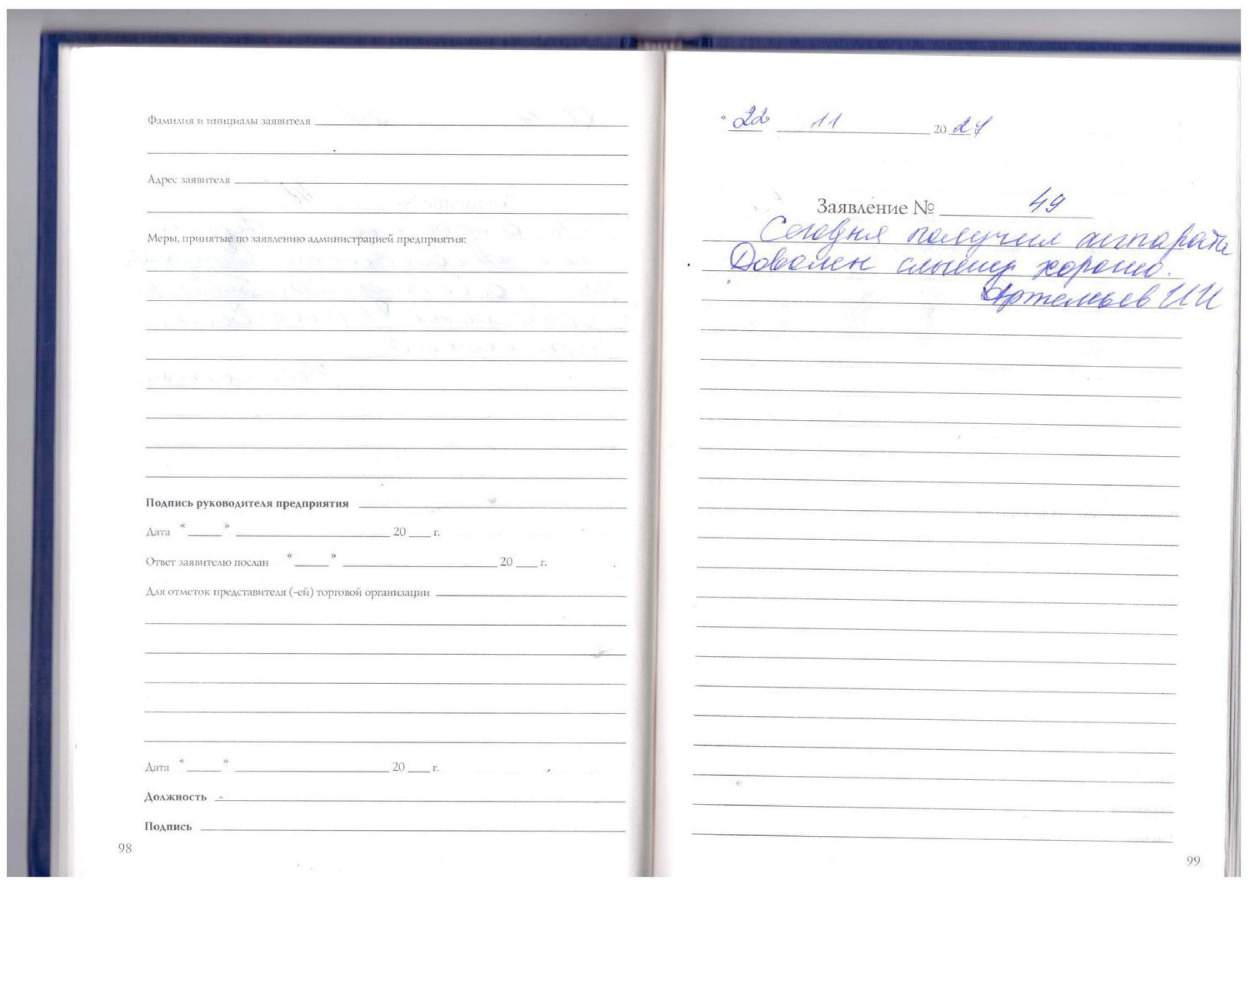 Фамилия и инициалы заявителя
Адрес заявителя
Меры, принятые по заявлению администрацией предприятия:
Подпись руководителя предприятия
Дата “ ” 20 г.
Ответ заявителю послан “ ” 20 г.
Для отметок представителя (-ей) торговой организации
Дата “ ” 20 г.
Должность
Подпись
98
“22” 11 2021
Заявление № 49
Сегодня получил аппараты
Доволен слышу хорошо.
Артемьев И И
99